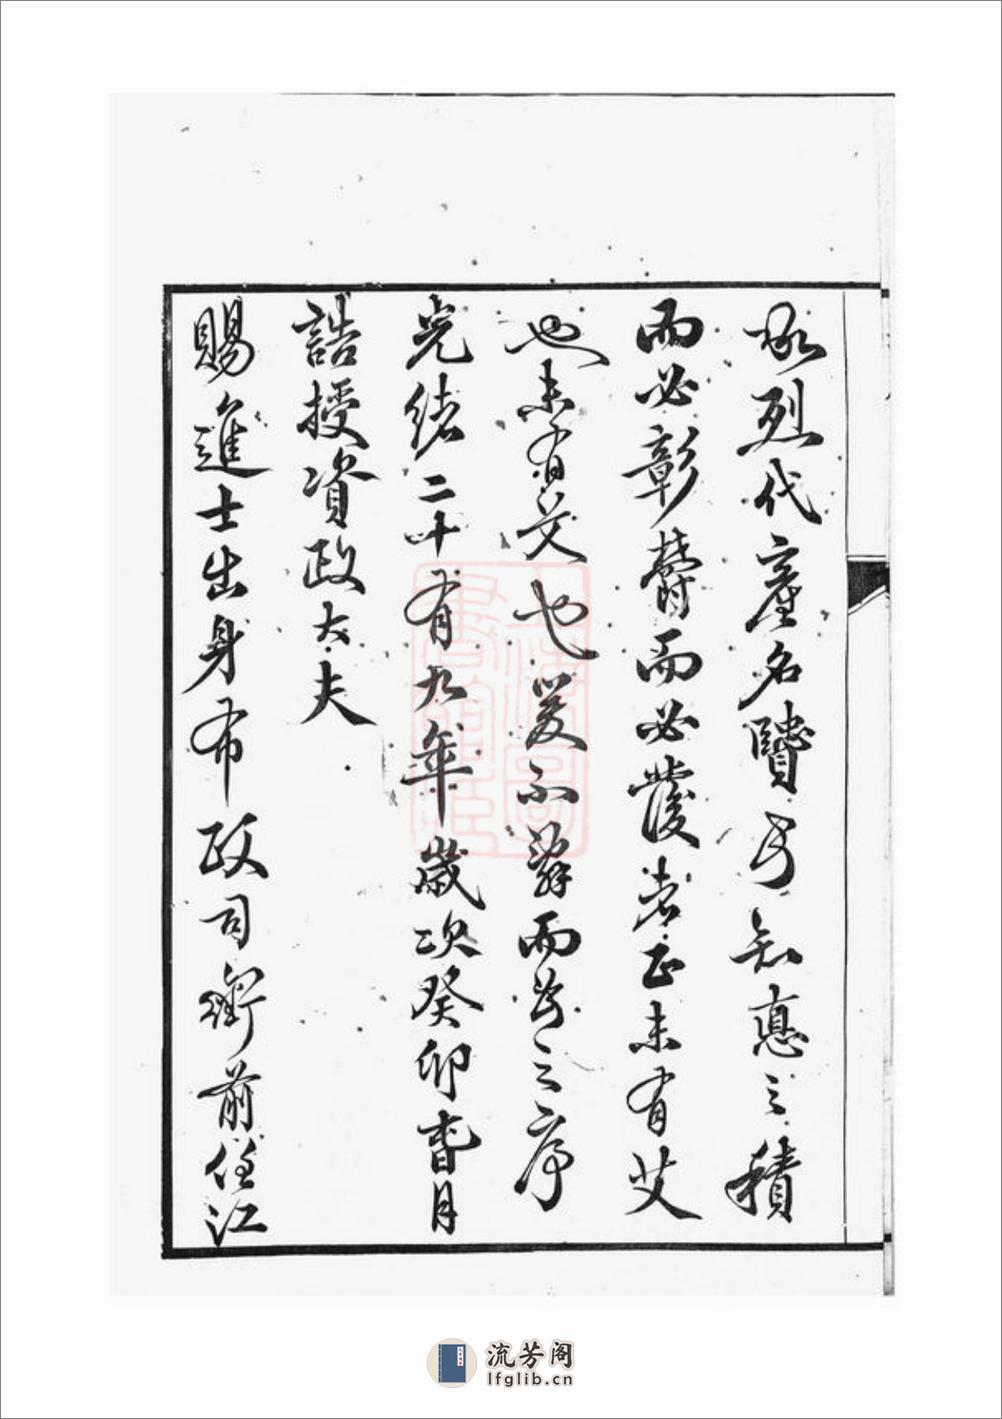 烈代產名賢可知悳之積
而必彰鬱而必發者正未有艾
也未有艾也爰不辭而為之序
光緒二十有九年歲次癸卯春月
誥授資政大夫
賜進士出身布政司銜前任江
流芳阁
lfglib.cn